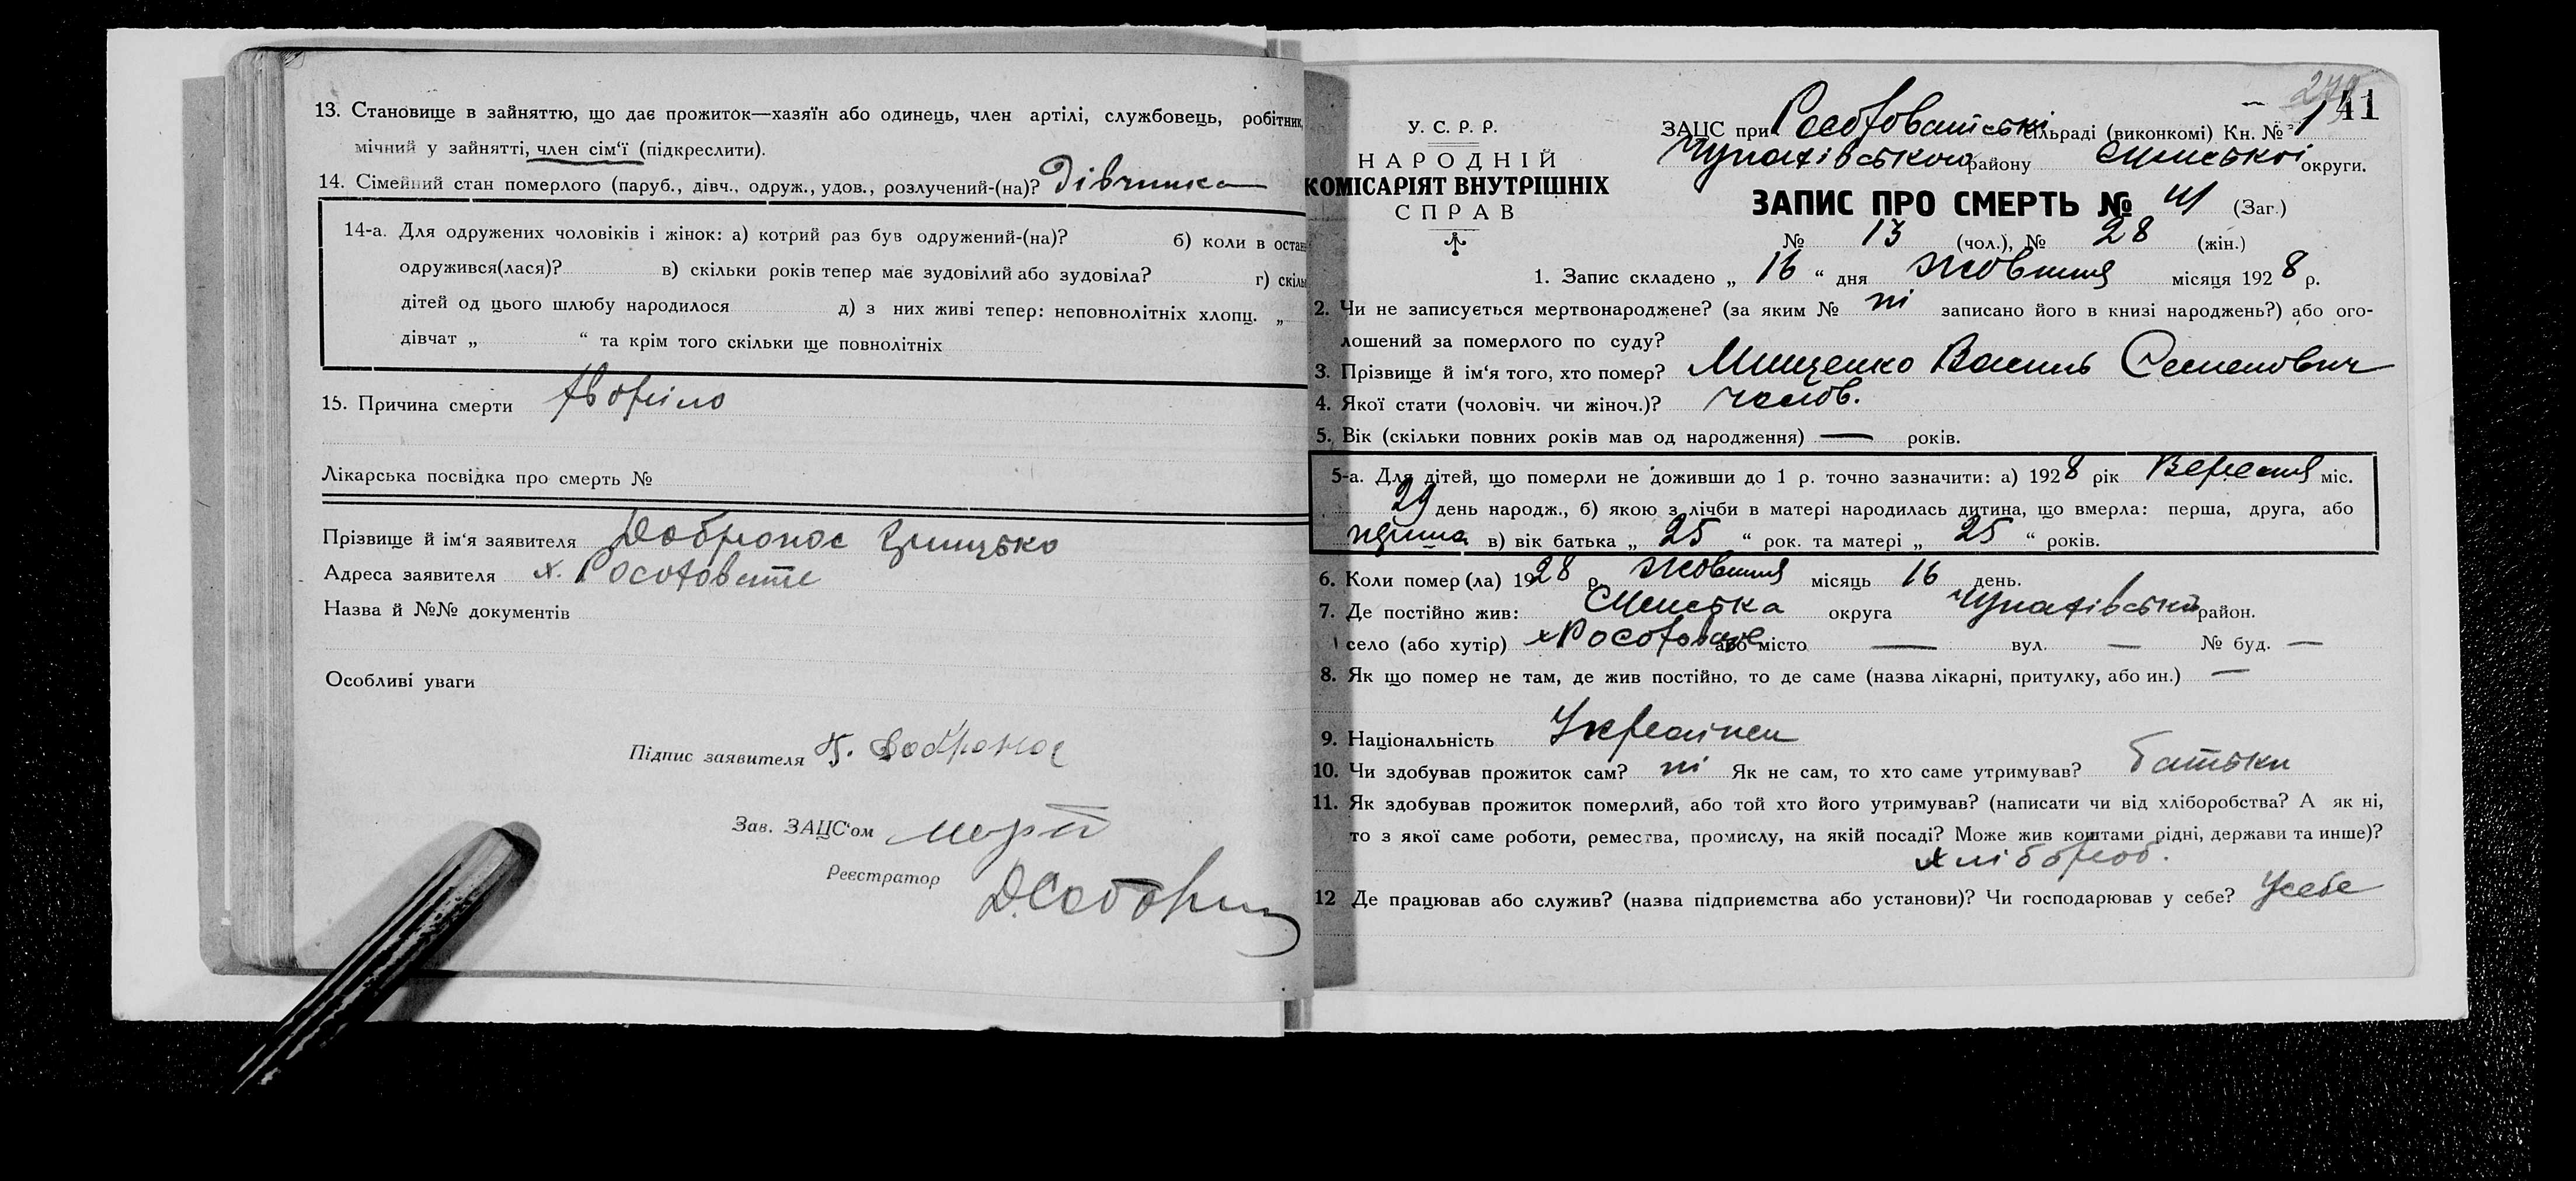 13. Становище в зайняттю, що дає прожиток—хазяїн або одинець, член артілі, службовець, робітник,
мічний у зайнятті, член сім'ї (підкреслити).
14. Сімейний стан померлого (паруб., дівч., одруж., удов., розлучений-(на)? Дівчинка
14-а. Для одружених чоловіків і жінок: а) котрий раз був одружений-(на)? б) коли в остан
одружився(лася)? в) скільки років тепер має зудовілий або зудовіла? г) скіль
дітей од цього шлюбу народилося д) з них живі тепер: неповнолітніх хлопц. „
дівчат „ “ та крім того скільки ще повнолітніх
15. Причина смерти
Лікарська посвідка про смерть №
Прізвище й ім'я заявителя Добронос Грицько
Адреса заявителя х. Росоховате
Назва й №№ документів
Особливі уваги
Підпис заявителя Г. Добронос
Зав. ЗАЦС'ом
Реєстратор
41
У. С. Р. Р.
НАРОДНІЙ
КОМІСАРІЯТ ВНУТРІШНІХ
СПРАВ
ЗАЦС при Росоховатській сільраді (виконкомі) Кн. № 1
району Сумської округи.
ЗАПИС ПРО СМЕРТЬ № 41 (Заг.)
№ 13 (чол.), № 28 (жін.)
1. Запис складено „ 16 “ дня Жовтня місяця 1928 р.
2. Чи не записується мертвонароджене? (за яким № ні записано його в книзі народжень?) або ого-
лошений за померлого по суду?
3. Прізвище й ім'я того, хто помер? Мищенко Василь Семенович
4. Якої стати (чоловіч. чи жіноч.)? чолов.
5. Вік (скільки повних років мав од народження) — років.
5-а. Для дітей, що померли не доживши до 1 р. точно зазначити: а) 1928 рік Вересня міс.
29 день народж., б) якою з лічби в матері народилась дитина, що вмерла: перша, друга, або
перша в) вік батька „ 25 “ рок. та матері „ 25 “ років.
6. Коли помер(ла) 1928 р. Жовтня місяць 16 день.
7. Де постійно жив: Сумська округа район.
село (або хутір) х Росоховате або місто — вул. — № буд. —
8. Як що помер не там, де жив постійно, то де саме (назва лікарні, притулку, або ин.) —
9. Національність Українец
10. Чи здобував прожиток сам? ні Як не сам, то хто саме утримував? батьки
11. Як здобував прожиток померлий, або той хто його утримував? (написати чи від хліборобства? А як ні,
то з якої саме роботи, ремества, промислу, на якій посаді? Може жив коштами рідні, держави та инше)?
хлібороб.
12 Де працював або служив? (назва підприємства або установи)? Чи господарював у себе? Усебе